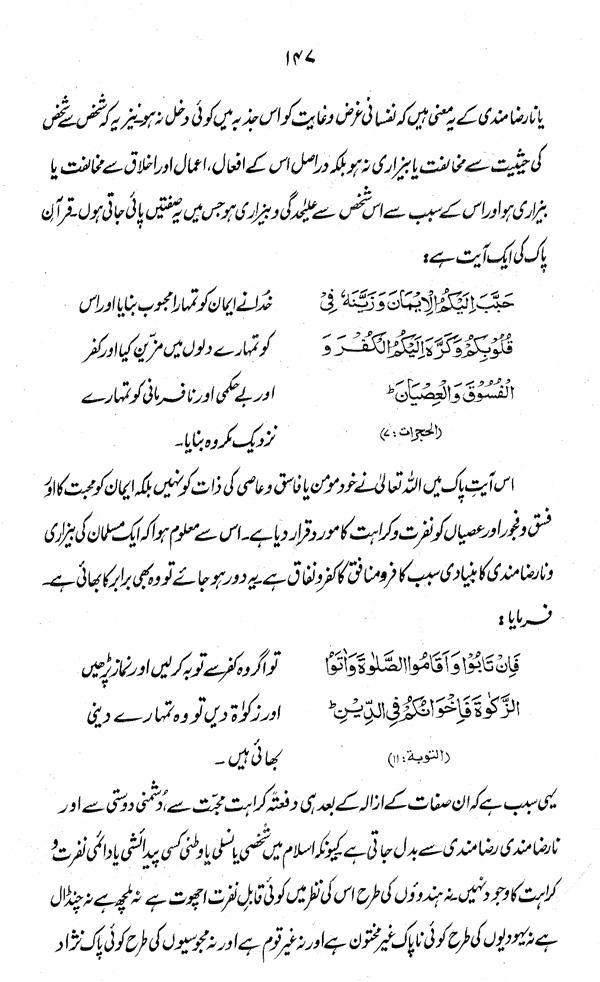 ۱۴۷
یا نارضامندی کے یہ معنی ہیں کہ نفسانی غرض و غایت کو اس جذبہ میں کوئی دخل نہ ہو، نیز یہ کہ شخص سے شخص
کی حیثیت سے مخالفت یا بیزاری نہ ہو بلکہ دراصل اس کے افعال، اعمال اور اخلاق سے مخالفت یا
بیزاری ہو اور اس کے سبب سے اس شخص سے علیٰحدگی و بیزاری ہو جس میں یہ صفتیں پائی جاتی ہوں۔ قرآن
پاک کی ایک آیت ہے:
حَبَّبَ اِلَيْكُمُ الْاِيْمَانَ وَزَيَّنَهٗ فِيْ خدا نے ایمان کو تمہارا محبوب بنایا اور اس
قُلُوْبِكُمْ وَكَرَّهَ اِلَيْكُمُ الْكُفْرَ وَ کو تمہارے دلوں میں مزیّن کیا اور کفر
الْفُسُوْقَ وَالْعِصْيَانَ ؕ اور بے حکمی اور نافرمانی کو تمہارے
(الحجرات: ۷) نزدیک مکروہ بنایا۔
اس آیت پاک میں اللہ تعالیٰ نے خود مومن یا فاسق و عاصی کی ذات کو نہیں بلکہ ایمان کو محبت کا اور
فسق و فجور اور عصیاں کو نفرت و کراہت کا مورد قرار دیا ہے۔ اس سے معلوم ہوا کہ ایک مسلمان کی بیزاری
و نارضامندی کا بنیادی سبب کافر و منافق کا کفر و نفاق ہے۔ یہ دور ہو جائے تو وہ بھی برابر کا بھائی ہے۔
فرمایا:
فَاِنْ تَابُوْا وَاَقَامُوا الصَّلٰوةَ وَاٰتَوُا تو اگر وہ کفر سے توبہ کر لیں اور نماز پڑھیں
الزَّكٰوةَ فَاِخْوَانُكُمْ فِي الدِّيْنِ ؕ اور زکوٰۃ دیں تو وہ تمہارے دینی
(التوبة: ۱۱) بھائی ہیں۔
یہی سبب ہے کہ ان صفات کے ازالہ کے بعد ہی دفعتہً کراہت محبّت سے، دشمنی دوستی سے اور
نارضامندی رضامندی سے بدل جاتی ہے کیونکہ اسلام میں شخصی یا نسلی یا وطنی کسی پیدائشی یا دائمی نفرت و
کراہت کا وجود نہیں۔ نہ ہندوؤں کی طرح اس کی نظر میں کوئی قابلِ نفرت اچھوت ہے نہ ملچھ ہے نہ چنڈال
ہے نہ یہودیوں کی طرح کوئی ناپاک غیر مختون ہے اور نہ غیر قوم ہے اور نہ مجوسیوں کی طرح کوئی پاک نژاد